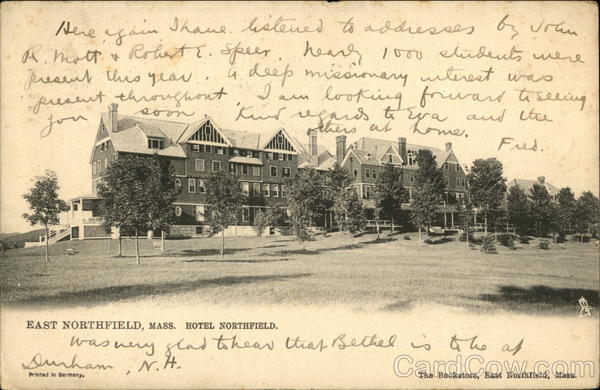 Here again I have listened to addresses by John
R. Mott & Robert E. Speer. Nearly 1000 students were
present this year. A deep missionary interest was
present throughout. I am looking forward to seeing
you soon. Kind regards to Eva and the
others at home.
Fred.
EAST NORTHFIELD, MASS. HOTEL NORTHFIELD.
Printed in Germany.
Was very glad to hear that Bethel is to be at
Durham, N.H.
The Bookstore, East Northfield, Mass.
CardCow.com